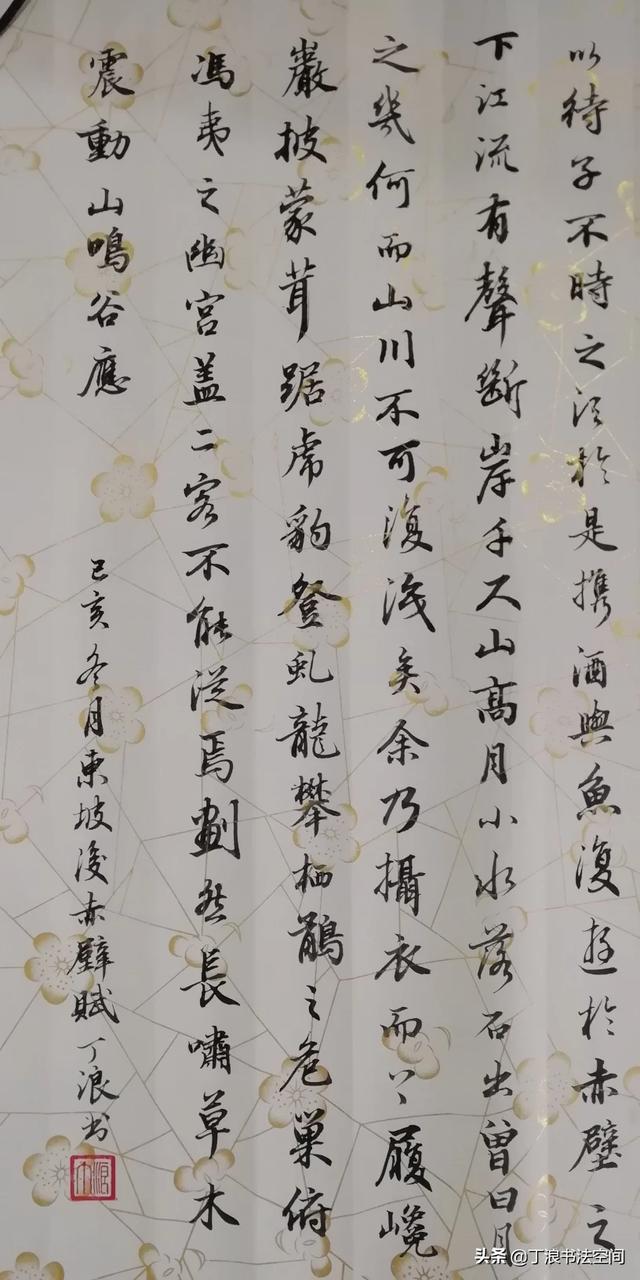 以待子不時之須於是攜酒與魚復遊於赤壁之
下江流有聲斷岸千尺山高月小水落石出曾日月
之幾何而山川不可復識矣余乃攝衣而上履巉
巖披蒙茸踞虎豹登虬龍攀栖鶻之危巢俯
馮夷之幽宮盖二客不能從焉劃然長嘯草木
震動山鳴谷應
己亥冬月東坡後赤壁賦丁浪书
头条@丁浪书法空间